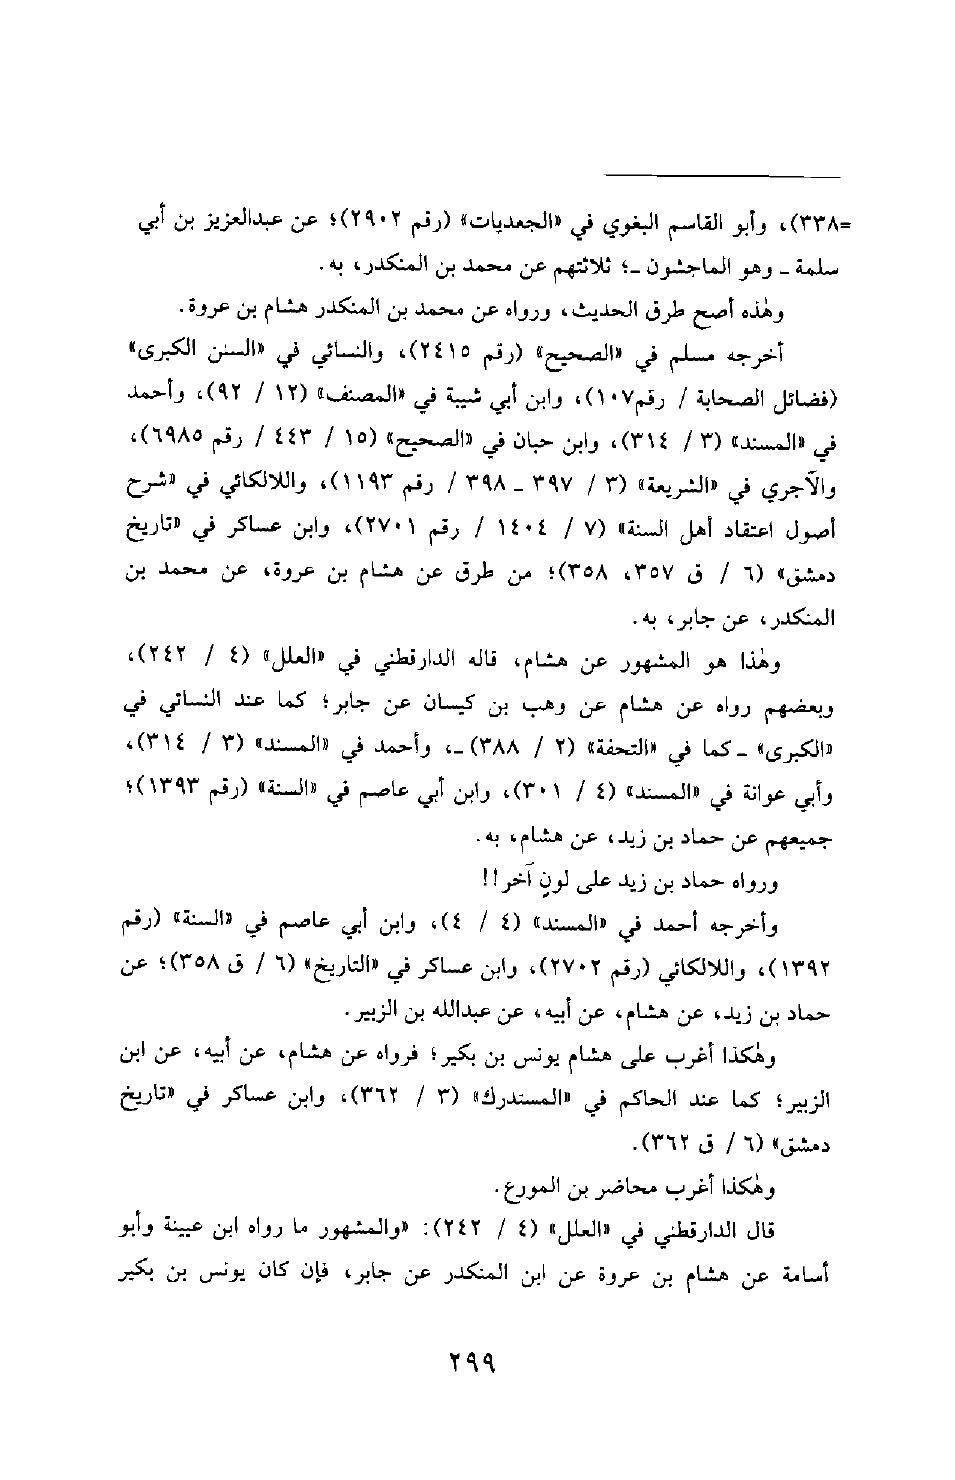 =٣٣٨)، وأبو القاسم البغوي في «الجعديات» (رقم ٢٩٠٢)؛ عن عبدالعزيز بن أبي
سلمة ـ وهو الماجشون ـ؛ ثلاثتهم عن محمد بن المنكدر، به.
وهٰذه أصح طرق الحديث، ورواه عن محمد بن المنكدر هشام بن عروة.
أخرجه مسلم في «الصحيح» (رقم ٢٤١٥)، والنسائي في «السنن الكبرى»
(فضائل الصحابة / رقم١٠٧)، وابن أبي شيبة في «المصنف» (١٢ / ٩٢)، وأحمد
في «المسند» (٣ / ٣١٤)، وابن حبان في «الصحيح» (١٥ / ٤٤٣ / رقم ٦٩٨٥)،
والآجري في «الشريعة» (٣ / ٣٩٧ ـ ٣٩٨ / رقم ١١٩٣)، واللالكائي في «شرح
أصول اعتقاد أهل السنة» (٧ / ١٤٠٤ / رقم ٢٧٠١)، وابن عساكر في «تاريخ
دمشق» (٦ / ق ٣٥٧، ٣٥٨)؛ من طرق عن هشام بن عروة، عن محمد بن
المنكدر، عن جابر، به.
وهٰذا هو المشهور عن هشام، قاله الدارقطني في «العلل» (٤ / ٢٤٢)،
وبعضهم رواه عن هشام عن وهب بن كيسان عن جابر؛ كما عند النسائي في
«الكبرى» ـ كما في «التحفة» (٢ / ٣٨٨) ـ، وأحمد في «المسند» (٣ / ٣١٤)،
وأبي عوانة في «المسند» (٤ / ٣٠١)، وابن أبي عاصم في «السنة» (رقم ١٣٩٣)؛
جميعهم عن حماد بن زيد، عن هشام، به.
ورواه حماد بن زيد على لونٍ آخر!!
وأخرجه أحمد في «المسند» (٤ / ٤)، وابن أبي عاصم في «السنة» (رقم
١٣٩٢)، واللالكائي (رقم ٢٧٠٢)، وابن عساكر في «التاريخ» (٦ / ق ٣٥٨)؛ عن
حماد بن زيد، عن هشام، عن أبيه، عن عبدالله بن الزبير.
وهٰكذا أغرب على هشام يونس بن بكير؛ فرواه عن هشام، عن أبيه، عن ابن
الزبير؛ كما عند الحاكم في «المستدرك» (٣ / ٣٦٢)، وابن عساكر في «تاريخ
دمشق» (٦ / ق ٣٦٢).
وهٰكذا أغرب محاضر بن المورع.
قال الدارقطني في «العلل» (٤ / ٢٤٢): «والمشهور ما رواه ابن عيينة وأبو
أسامة عن هشام بن عروة عن ابن المنكدر عن جابر، فإن كان يونس بن بكير
٢٩٩